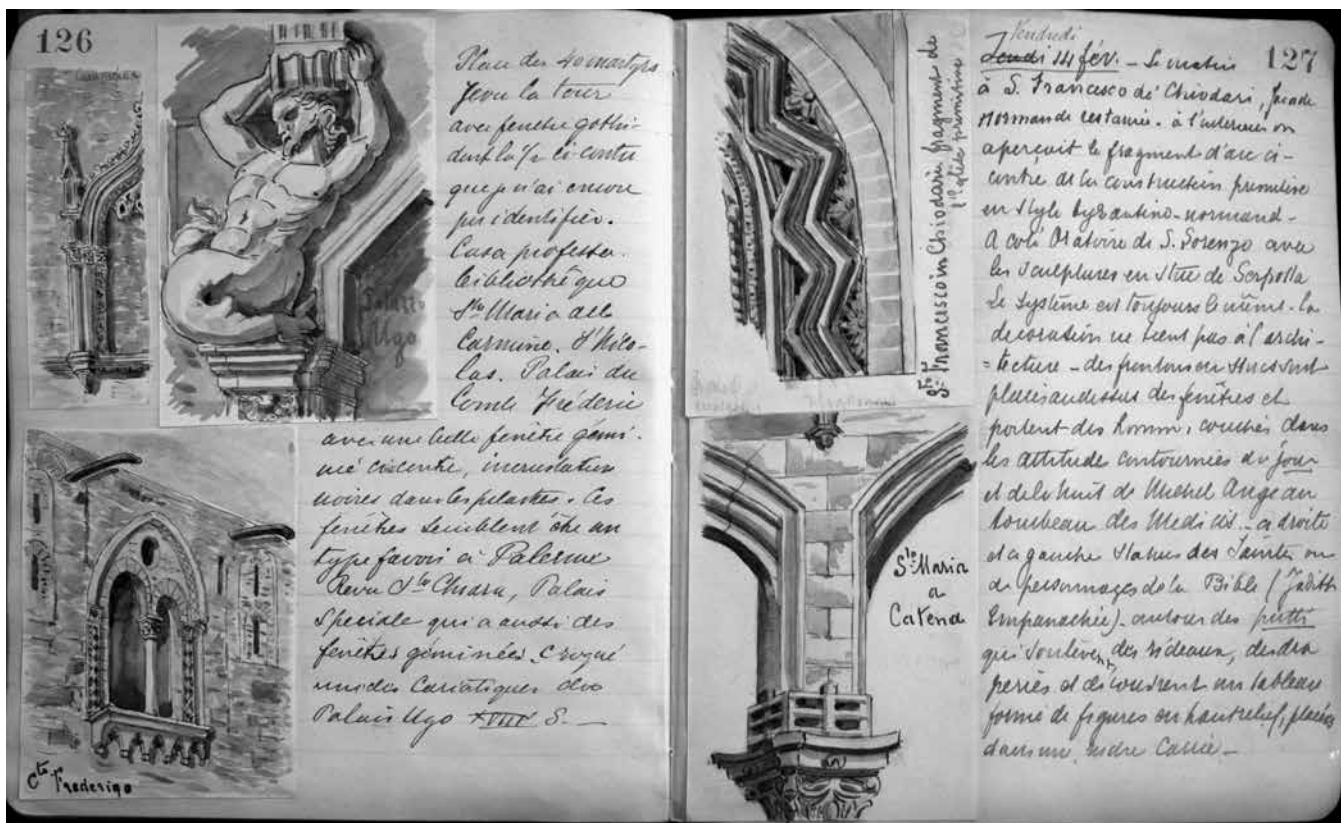 126
Place des 40 martyrs
Revu la tour
avec fenêtre gothi-
dont la 1/2 ci contre
que je n'ai encore
pu identifier.
Casa professa.
bibliothèque
Sta Maria del
Carmine. St Nico-
las. Palais du
Comte Fréderic
avec une belle fenêtre gémi-
née ci contre, incrustation
noires dans les pilastres. Ces
fenêtres semblent être un
type favori à Palerme
Revu Sta Chiara, Palais
Speciale qui a aussi des
fenêtres géminées. Croqué
une des Cariatiques du
Palais Ugo XVIII S. —
Palazzo
Ugo
Cte Frederigo
Sto Francesco in Chiodari fragment de
l'église primitive
Sta Maria
a
Catena
127
Vendredi
Jeudi 14 fév. — Le matin
à S. Francesco de' Chiodari, façade
normande restaurée. à l'intérieur on
aperçoit le fragment d'arc ci-
contre de la construction primitive
en style byzantino-normand -
A coté Oratoire de S. Lorenzo avec
les sculptures en stuc de Serpotta
Le système est toujours le même - la
decoration ne tient pas à l'archi-
=tecture - des frontons en stucs sont
placés au dessus des fenêtres et
portent des homm. couchés dans
les attitude contournées du jour
et de la nuit de Michel Ange au
tombeau des Medicis - a droite
et a gauche statues des Saintes ou
de personnages de la Bible (Judith
Empanachée) - autour des putti
qui soulèvent des rideaux, des dra
peries et découvrent un tableau
formé de figures en haut relief, placées
dans un cadre Carré —